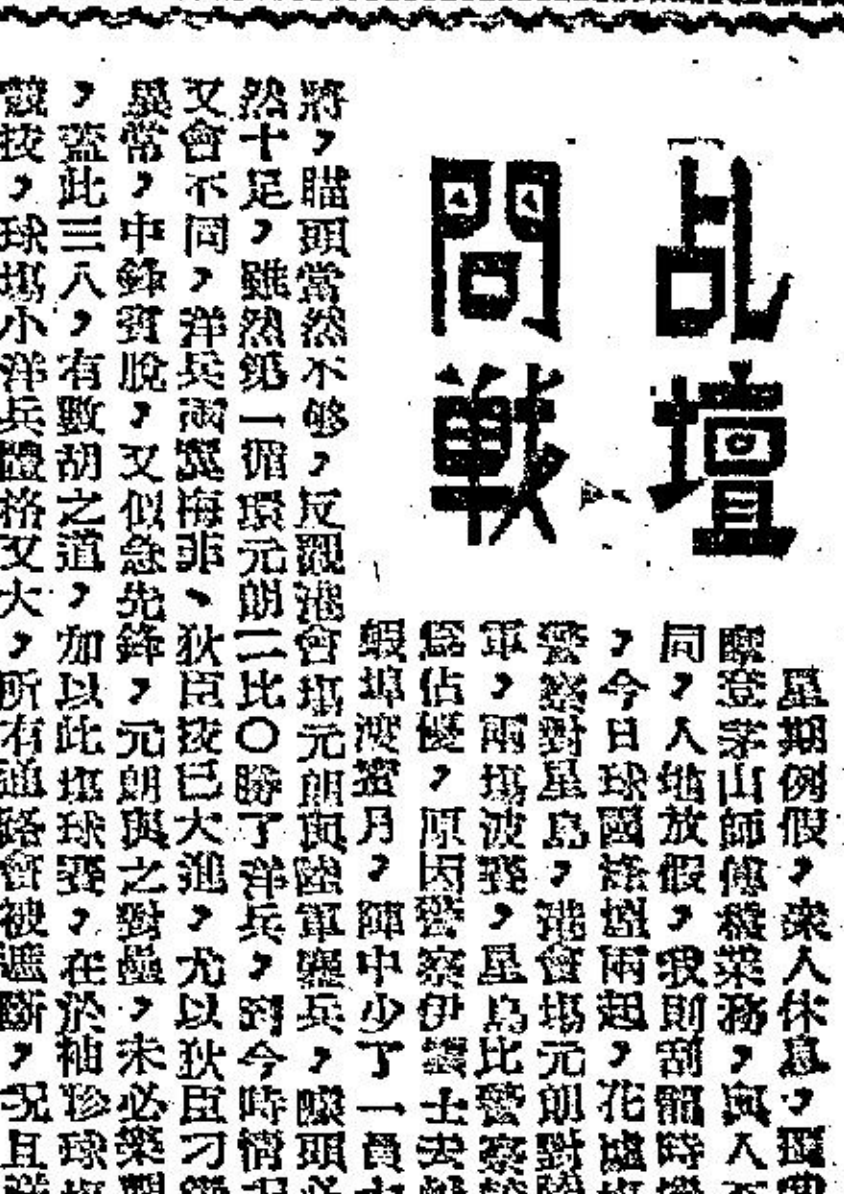 乩壇
問戰
星期例假，衆人休息，
登茅山師傅機業務，與人不
同，人地放假，我則刮龍時機
，今日球國烽烟兩起，花墟塲
警察對星島，港會塲元朗對陸
軍，兩塲波賽，星島比警察
爲佔優，原因警察伊士去
蝦埠渡蜜月，陣中少了一員大
將，瞄頭當然不够，反觀港會塲元朗與陸軍兵，頭必
然十足，雖然第一循環元朗二比〇勝了洋兵，到今時情况
又會不同，洋兵兩翼梅非、狄臣技已大進，尤以狄臣刁鑽
異常，中鋒賓脫，又似急先鋒，元朗與之對壘，未必樂觀
，蓋此三八，有數胡之道，加以此塲球賽，在於袖珍球塲
競技，球塲小洋兵體格又大，所有通路會被遮斷，况且